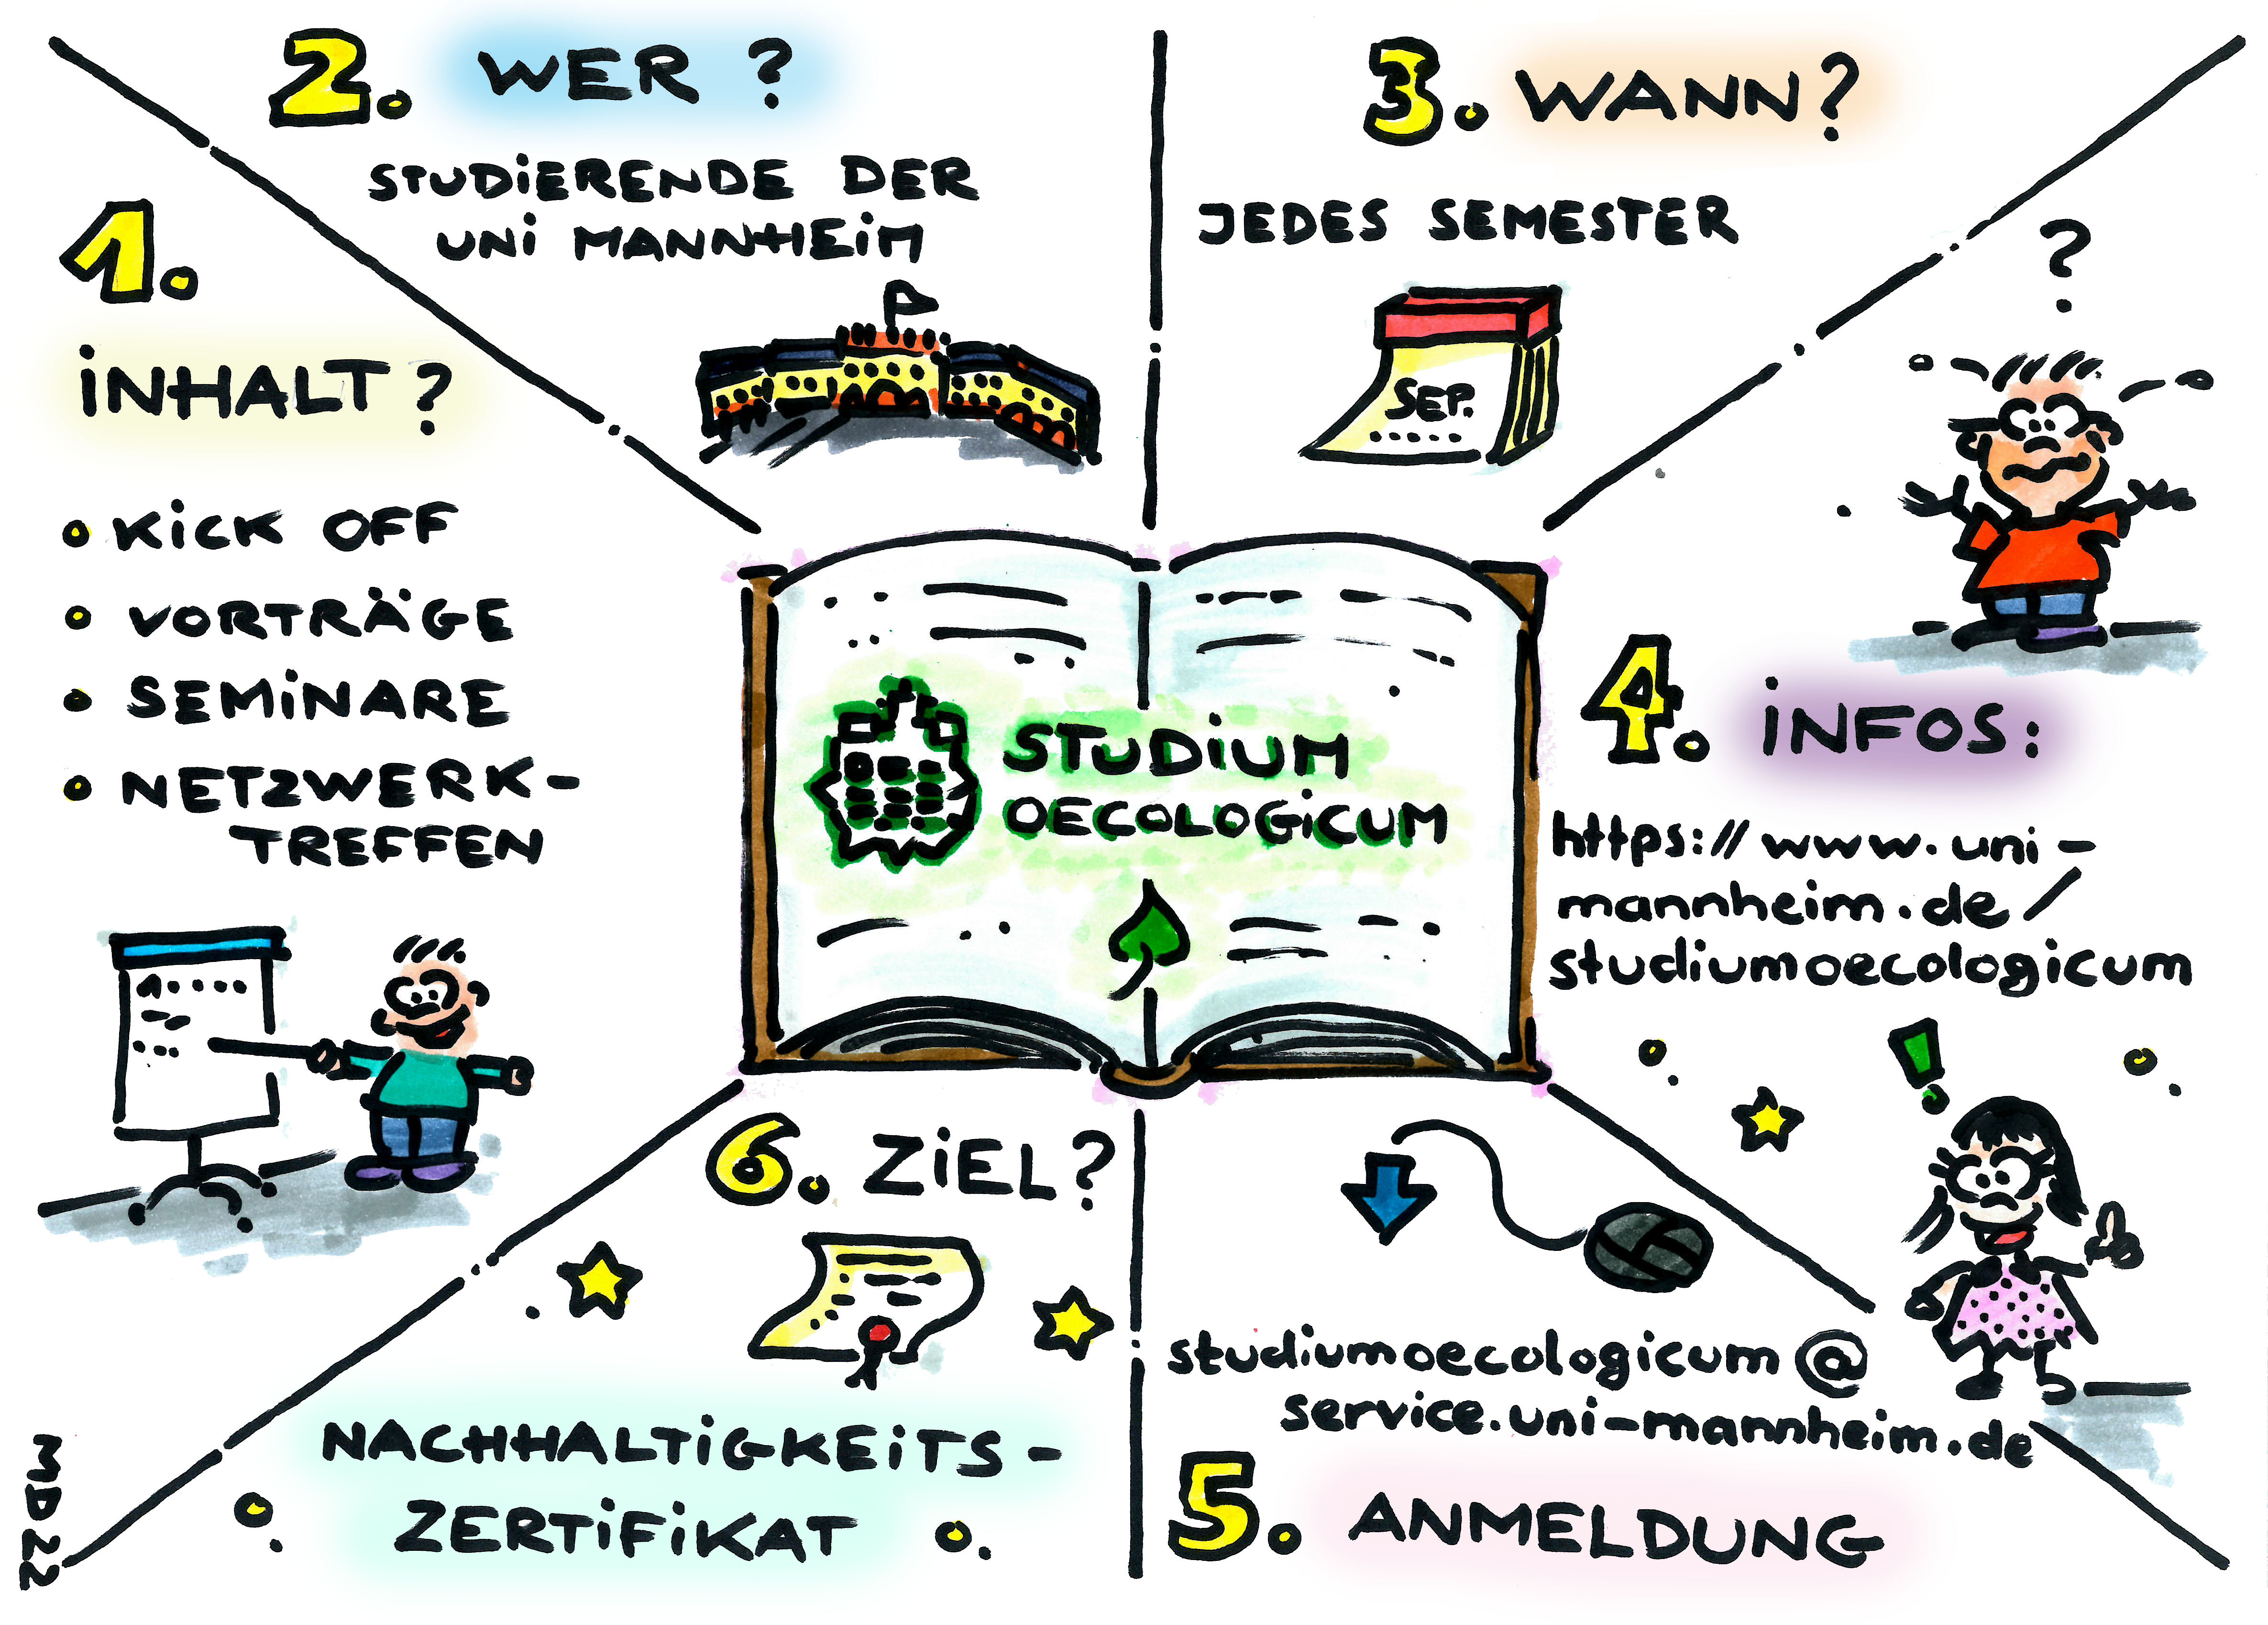 1.
iNHALT?
KiCK OFF
VORTRÄGE
SEMiNARE
NETZWERK-
TREFFEN
1.
2. WER?
STUDiERENDE DER
UNi MANNHEiM
3. WANN?
JEDES SEMESTER
SEP.
?
4. iNFOS:
https://www.uni-
mannheim.de/
studiumoecologicum
STUDiUM
OECOLOGiCUM
!
studiumoecologicum@
service.uni-mannheim.de
5. ANMELDUNG
6. ZiEL?
NACHHALTiGKEiTS-
ZERTiFiKAT
MD22